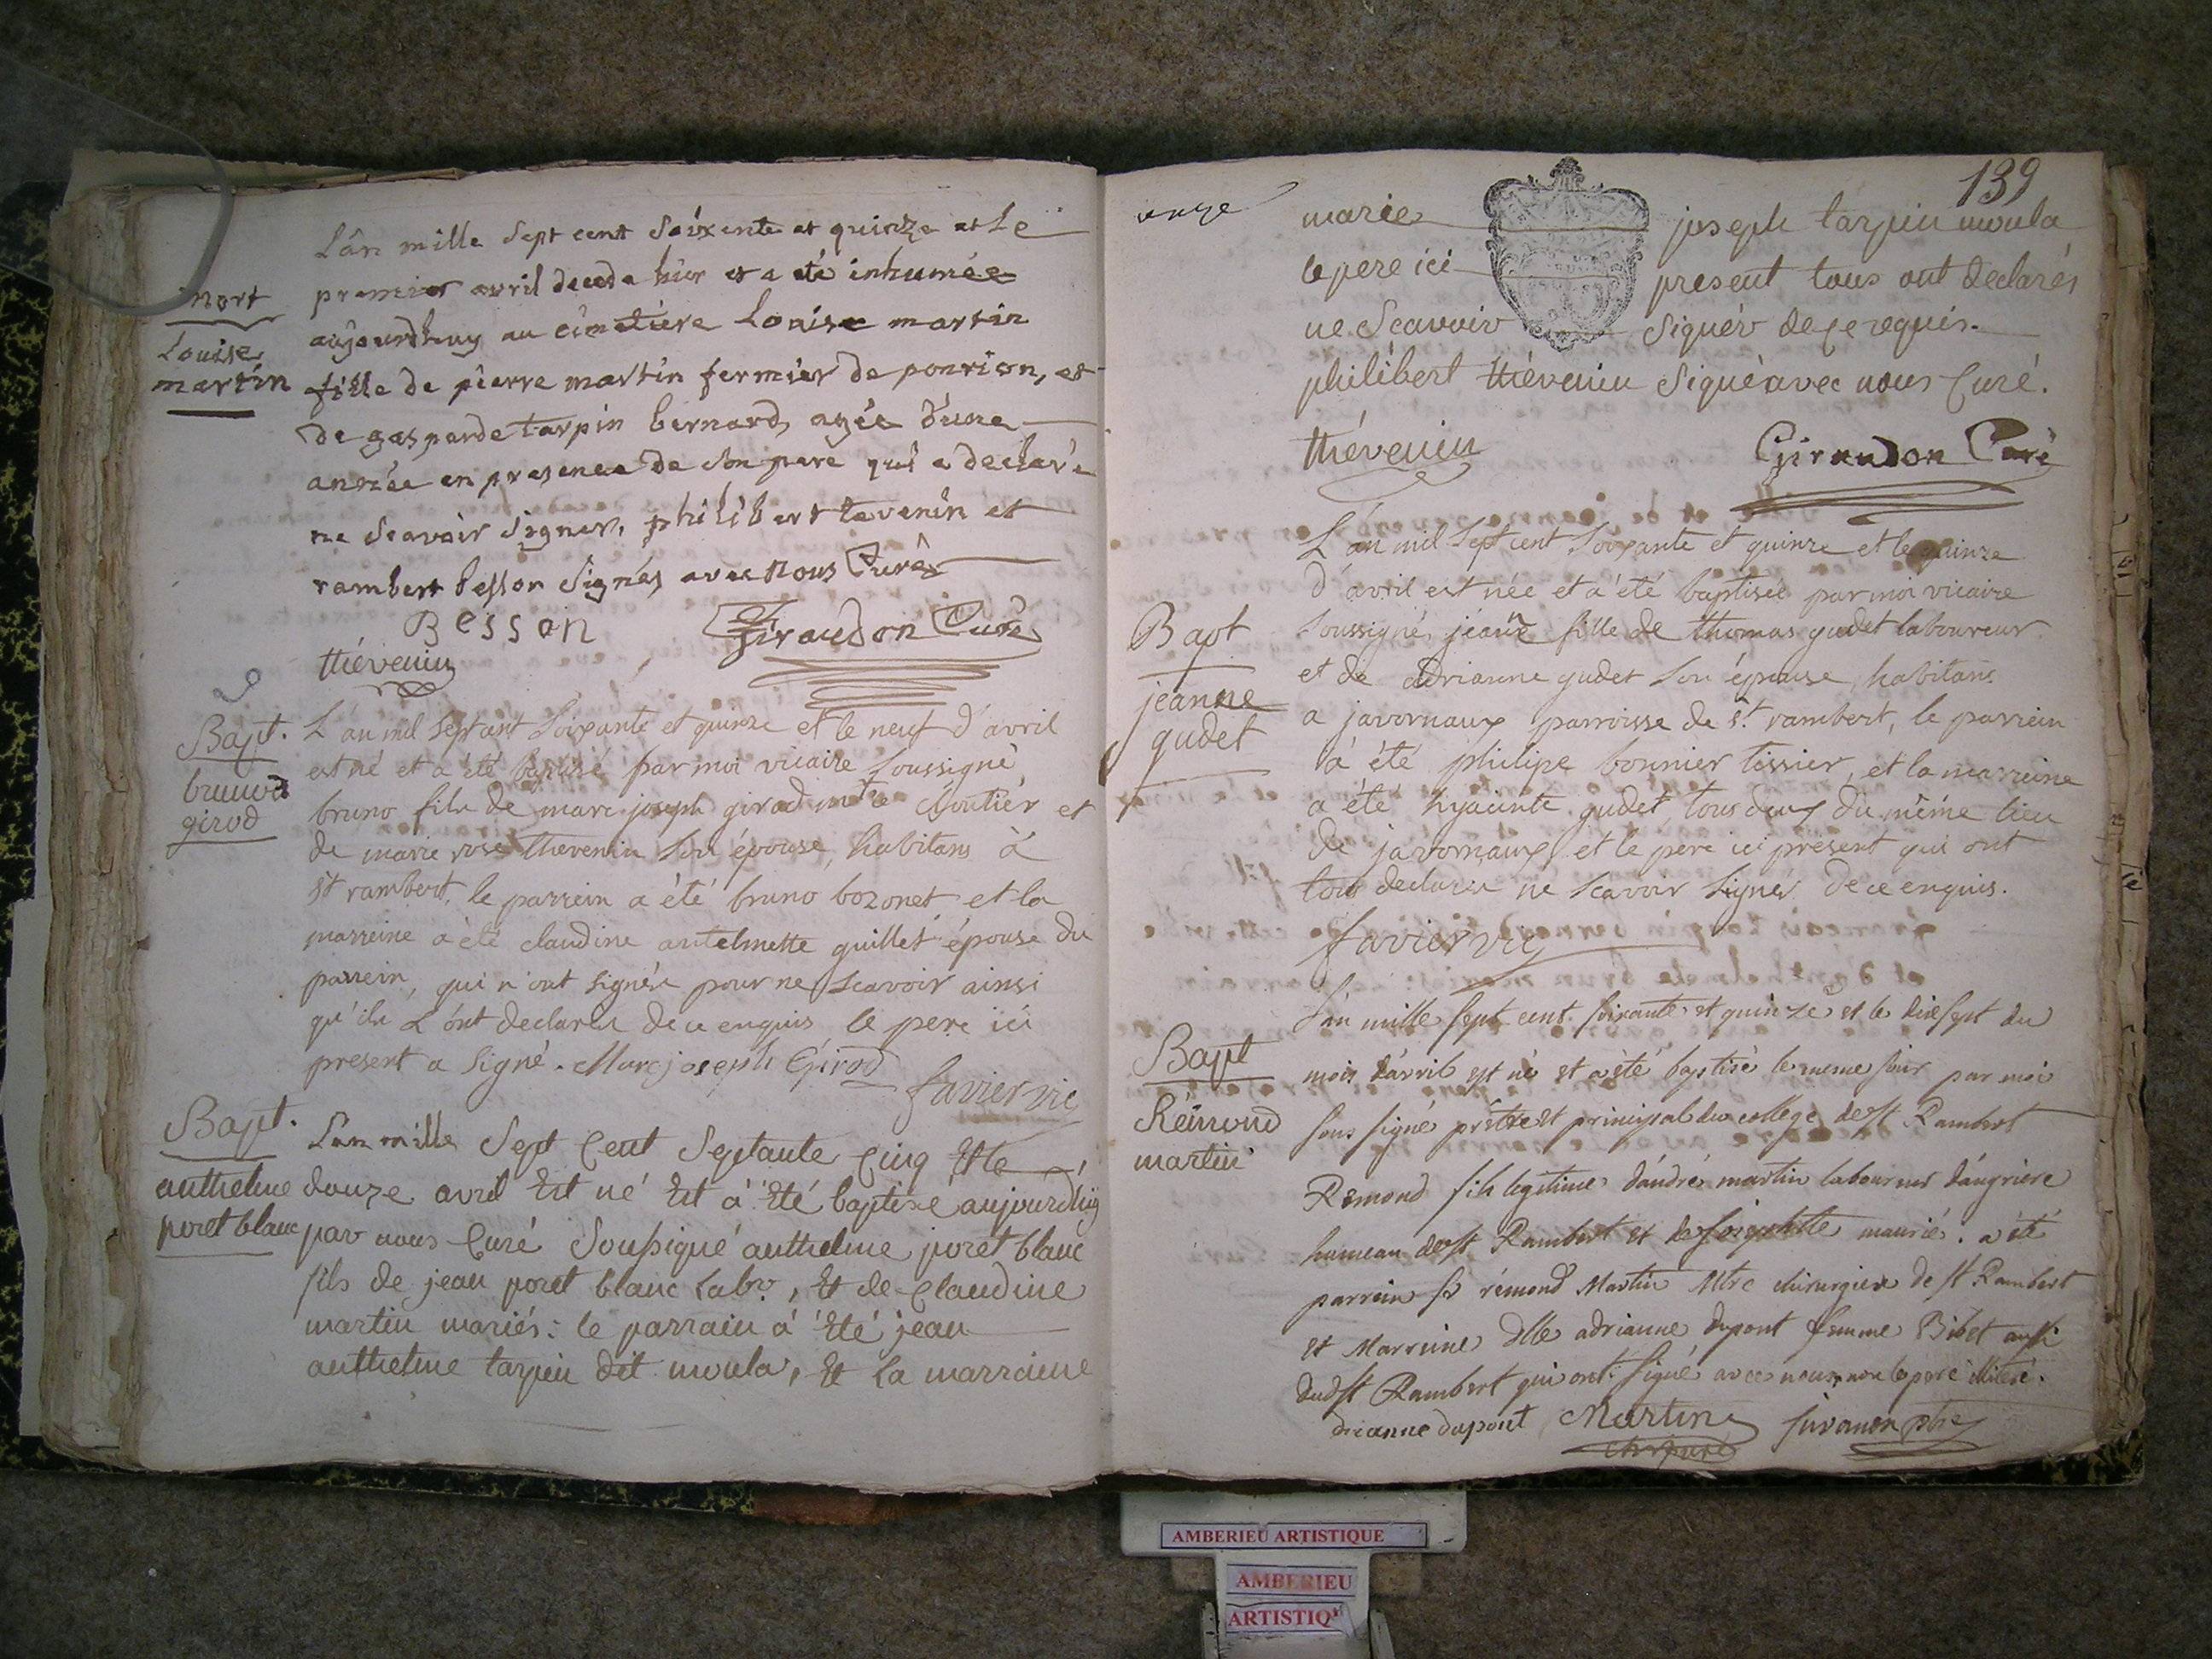 Lân mille Sept cent Soixente et quinze et Le
mort
premier avril decede hier et a eté inhumée
aujourdhuy au cimetiere Louise martin
Louise
martin
fille de pierre martin fermier de ponrion, et
de gasparde tarpin bernard, agée d'une
année en presence de son pere qui a declaré
ne Scavoir Signer, philibert tevenin et
rambert besson Signés avec nous Curé
Besson
Giraudon Curé
thévenin
Bapt.
L'an mil Sept cent Soixante et quinze et le neuf d'avril
est né et a été baptisé par moi vicaire Soussigné
bruno
girod
bruno fils de marc joseph girod mtre cloutier et
de marie rose thevenin Son épouse, habitans à
St rambert, le parrein a été bruno bozonet et la
marreine a été claudine antelmette guillet épouse du
parrein, qui n'ont signés pour ne Scavoir ainsi
qu'ils L'ont declarés de ce enquis le pere ici
present a signé. Marc joseph Girod
favier vic
Bapt.
L'an mille Sept Cent Septante Cinq Et le
anthelme
douze avril Est né Est à Eté baptisé aujourdhuy
poret blanc
par nous Curé Soussigné anthelme poret blanc
fils de jean poret blanc Labr, Et de Claudine
martin mariés: le parrain à Eté jean
anthelme tarpin dit moula, Et La marraine
139
marie joseph tarpin moula
le pere ici present tous ont declarés
ne Scavoir Signer de ce requis.
philibert thévenin Signé avec nous Curé.
thévenin
Giraudon Curé
L'an mil Sept cent Soixante et quinze et le quinze
d'avril est née et a été baptisée par moi vicaire
Bapt
jeanne
gudet
Soussigné, jeanne fille de thomas gudet laboureur
et de adrianne gudet Son épouse, habitans
a javornaux parroisse de St. rambert, le parrein
à été philipe bonnier tissier, et la marreine
a été hyacinte gudet, tous deux du même lieu
de javornaux et le pere ici présent qui ont
tous declarés ne Scavoir Signer de ce enquis.
favier vic
L'an mille sept cent soixante et quinze et le dixsept du
Bapt
mois d'avril est né et a été baptisé le meme jour par moi
Rémond
martin
sous signé prêtre et principal du college de st Rambert
Rémond fils legitime d'andré martin laboureur d'angriere
hameau de st Rambert et de mariés. a été
parrein sr rémond Martin Mtre chirurgien de st Rambert
et Marreine dlle adrianne dupont femme Bibet aussi
dudst Rambert qui ont signé avec nous, non le pere illiteré.
drianne dupont Martin
AMBERIEU ARTISTIQUE
AMBERIEU
ARTISTIQ